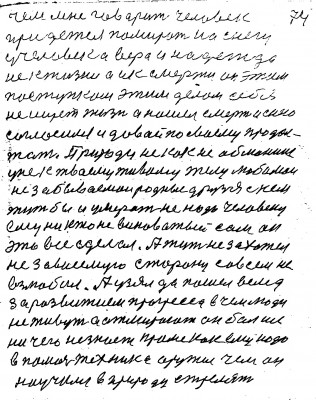 чем мне говарит человек 74
придется помират на снегу
у человека вера и надежда
не к жизни а к смерти он этим
поступком этим делом себе
не ищет жизн а нашел смерть с нею
согласился и давай по своему продол-
жат. Природу не как не обманиш
уже к твоему живому телу
не забываемаи родные друзя с кем
жит бы и умират не надо человеку
ему никто не виноватый сам он
это все сделал. А тут не захотел
не зависемую сторону совсем не
взлюбил. А узял да пошел вслед
за развитием прогресса в чем люди
не живут а он был ни
ни чего не знает проме как ему надо
в помощ техника оружие чем он
научился в природу стрелят